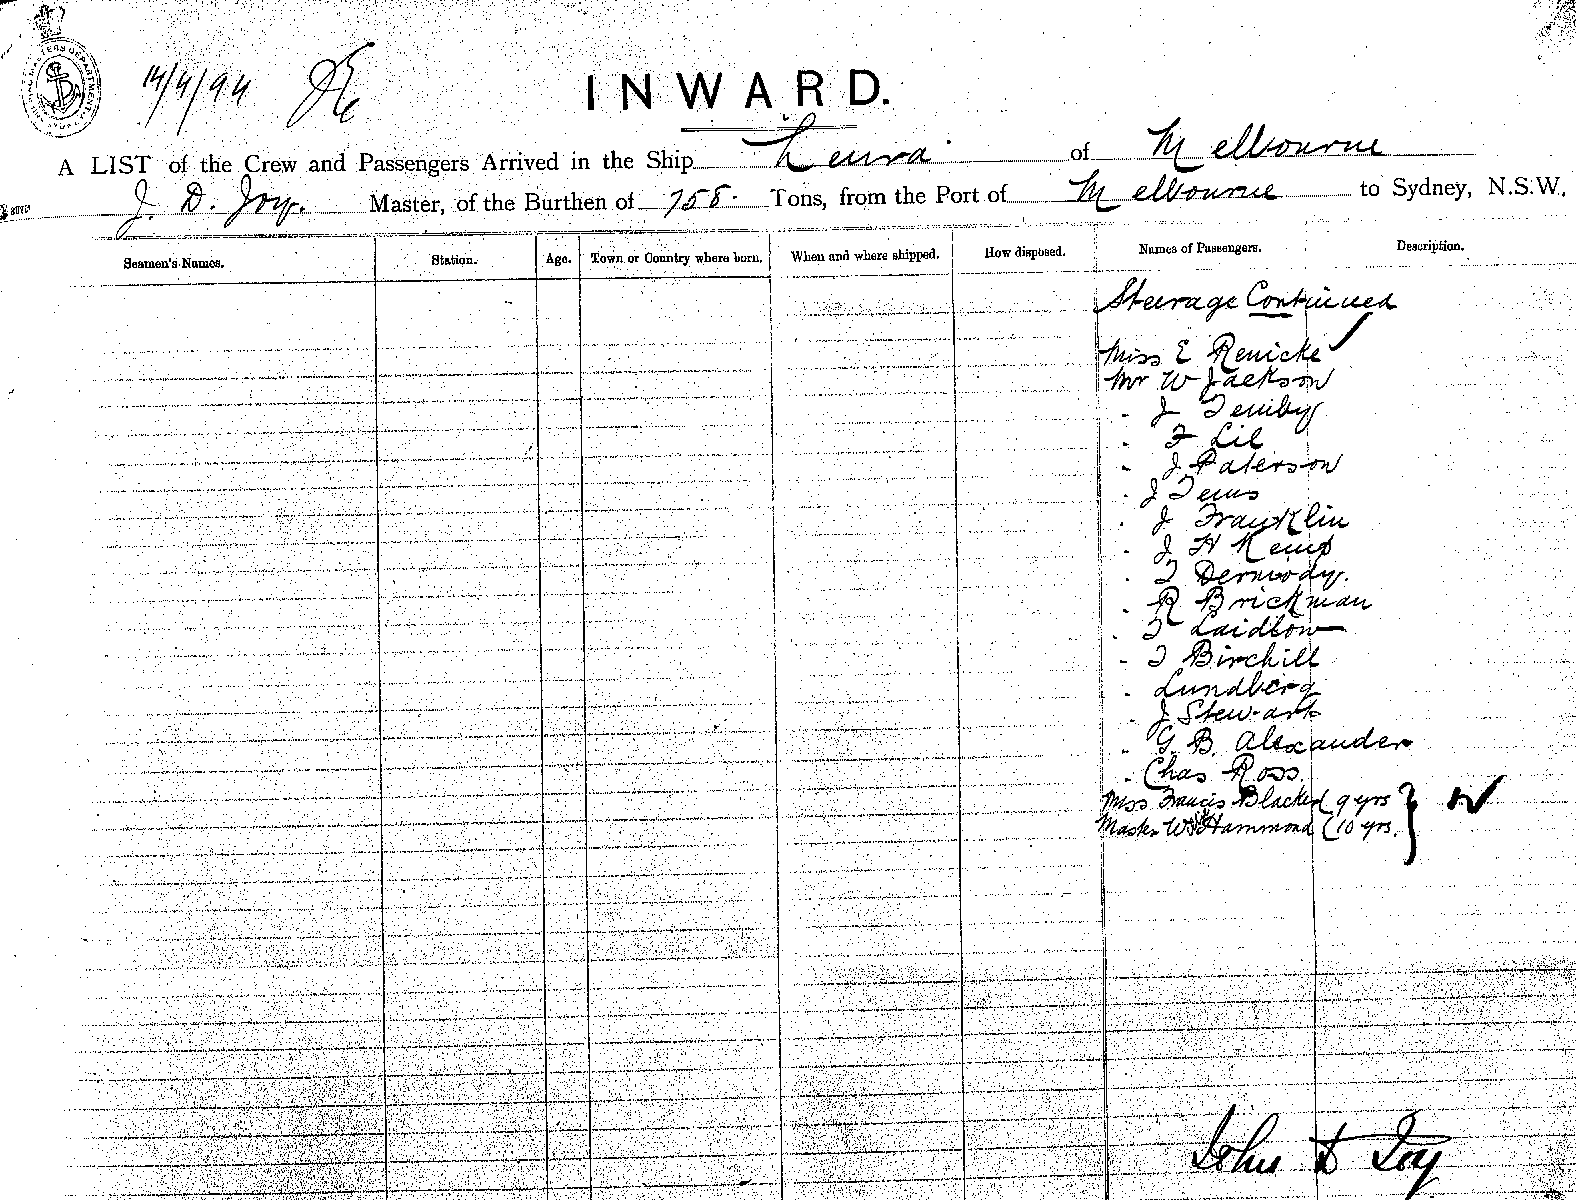 14/4/94
INWARD.
A LIST of the Crew and Passengers Arrived in the Ship Leura of Melbourne
J. D. Joy. Master, of the Burthen of 758. Tons, from the Port of Melbourne to Sydney, N.S.W.,
Seamen's Names. Station. Age. Town or Country where born. When and where shipped. How disposed. Names of Passengers. Description.
Steerage Continued
Miss E Renicke
Mr W Jackson
" J Temby
" F Lil
" J Paterson
" J Tems
" J Franklin
" J H Kemp
" T Dermody.
" R Brickman
" T Laidlow
" T Birchill
" Lundberg
" J Stewart
" G. B. Alexander
" Chas Ross.
Miss Francis Blacker (9 yrs
Master W Hammond (10 yrs.
John D Joy